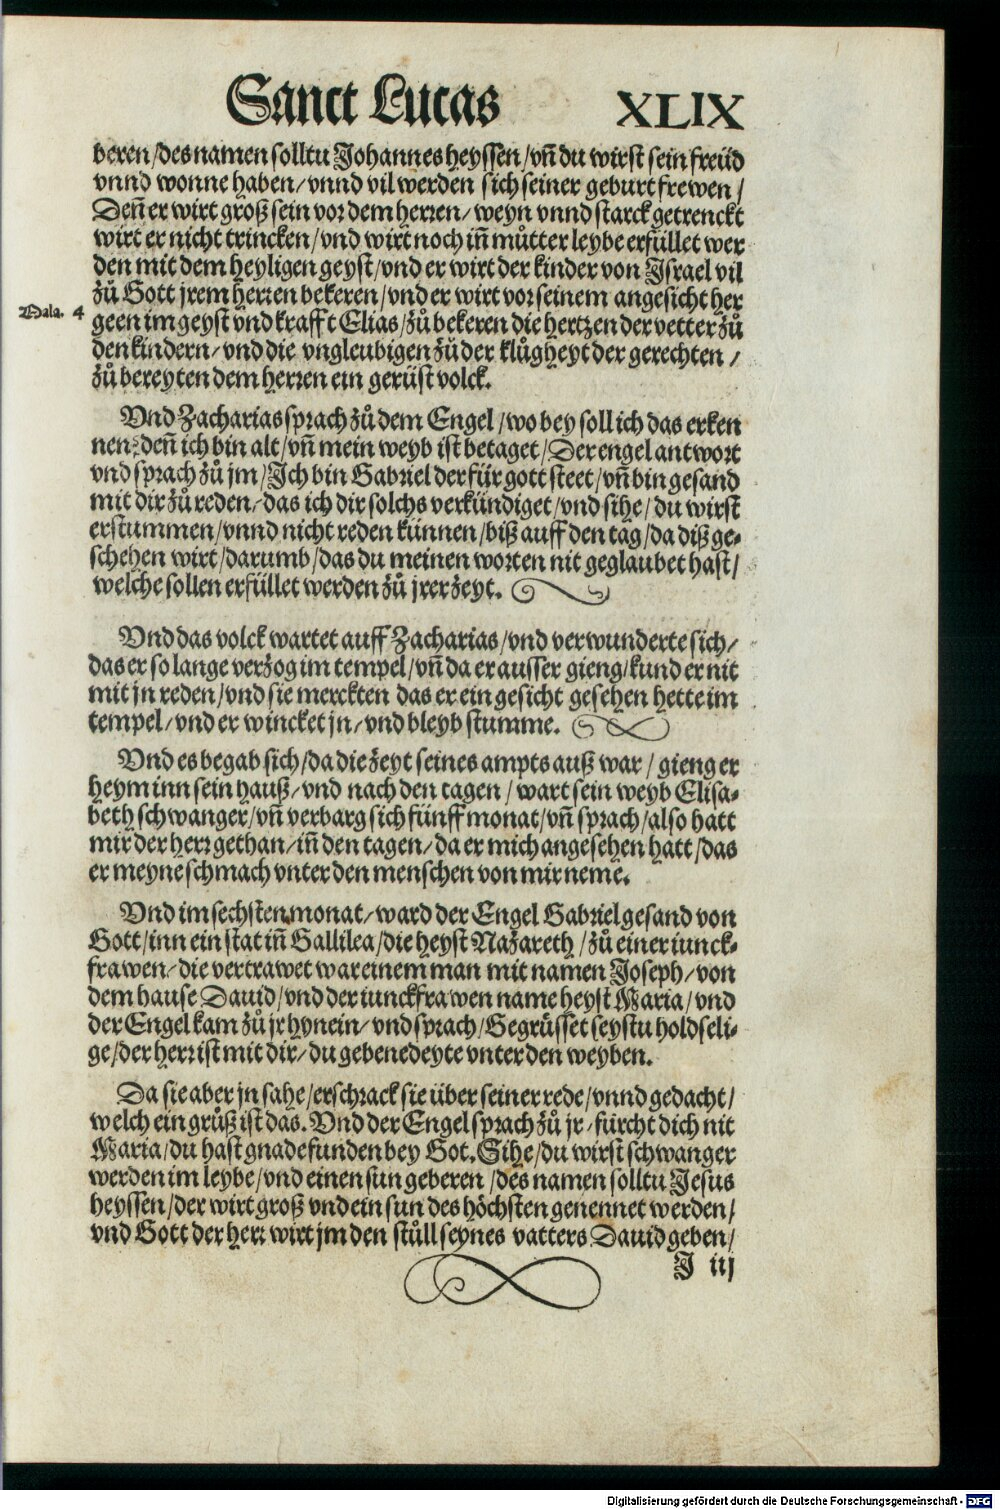 Sanct Lucas XLIX
beren/des namen solltu Johannes heyssen/vn̄ du wirst sein freüd
vnnd wonne haben/vnnd vil werden sich seiner geburt frewen/
Den̄ er wirt groß sein vor dem herren/weyn vnnd starck getrenckt
wirt er nicht trincken/vnd wirt noch in̄ můtter leybe erfüllet wer
den mit dem heyligen geyst/vnd er wirt der kinder von Israel vil
zů Gott jrem herren bekeren/vnd er wirt vor seinem angesicht her
Mala. 4
geen im geyst vnd krafft Elias/zů bekeren die hertzen der vetter zů
den kindern/vnd die vngleubigen zů der klůgheyt der gerechten/
zů bereyten dem herren ein gerüst volck.
Vnd Zacharias sprach zů dem Engel/wo bey soll ich das erken
nen: den̄ ich bin alt/vn̄ mein weyb ist betaget/Der engel antwort
vnd sprach zů jm/Ich bin Gabriel der für gott steet/vn̄ bin gesand
mit dir zů reden/das ich dir solchs verkündiget/vnd sihe/du wirst
erstummen/vnnd nicht reden künnen/biß auff den tag/da diß ge-
schehen wirt/darumb/das du meinen worten nit geglaubet hast/
welche sollen erfüllet werden zů jrer zeyt.
Vnd das volck wartet auff Zacharias/vnd verwunderte sich/
das er so lange verzog im tempel/vn̄ da er ausser gieng/kund er nit
mit jn reden/vnd sie merckten das er ein gesicht gesehen hette im
tempel/vnd er wincket jn/vnd bleyb stumme.
Vnd es begab sich/da die zeyt seines ampts auß war/gieng er
heym inn sein hauß/vnd nach den tagen/wart sein weyb Elisa-
beth schwanger/vn̄ verbarg sich fünff monat/vn̄ sprach/also hatt
mir der herr gethan/in̄ den tagen/da er mich angesehen hatt/das
er meyne schmach vnter den menschen von mir neme.
Vnd im sechsten monat/ward der Engel Gabriel gesand von
Gott/inn ein stat in̄ Gallilea/die heyst Nazareth/zů einer iunck-
frawen/die vertrawet war einem man mit namen Joseph/von
dem hause Dauid/vnd der iunckfrawen name heyst Maria/vnd
der Engel kam zů jr hynein/vnd sprach/Gegrüsset seystu holdseli-
ge/der herr ist mit dir/du gebenedeyte vnter den weyben.
Da sie aber jn sahe/erschrack sie über seiner rede/vnnd gedacht/
welch ein grůß ist das. Vnd der Engel sprach zů jr/fürcht dich nit
Maria/du hast gnade funden bey Got. Sihe/du wirst schwanger
werden im leybe/vnd einen sun geberen/des namen solltu Jesus
heyssen/der wirt groß vnd ein sun des höchsten genennet werden/
vnd Gott der herr wirt jm den stůll seynes vatters Dauid geben/
J iij
Digitalisierung gefördert durch die Deutsche Forschungsgemeinschaft - DFG